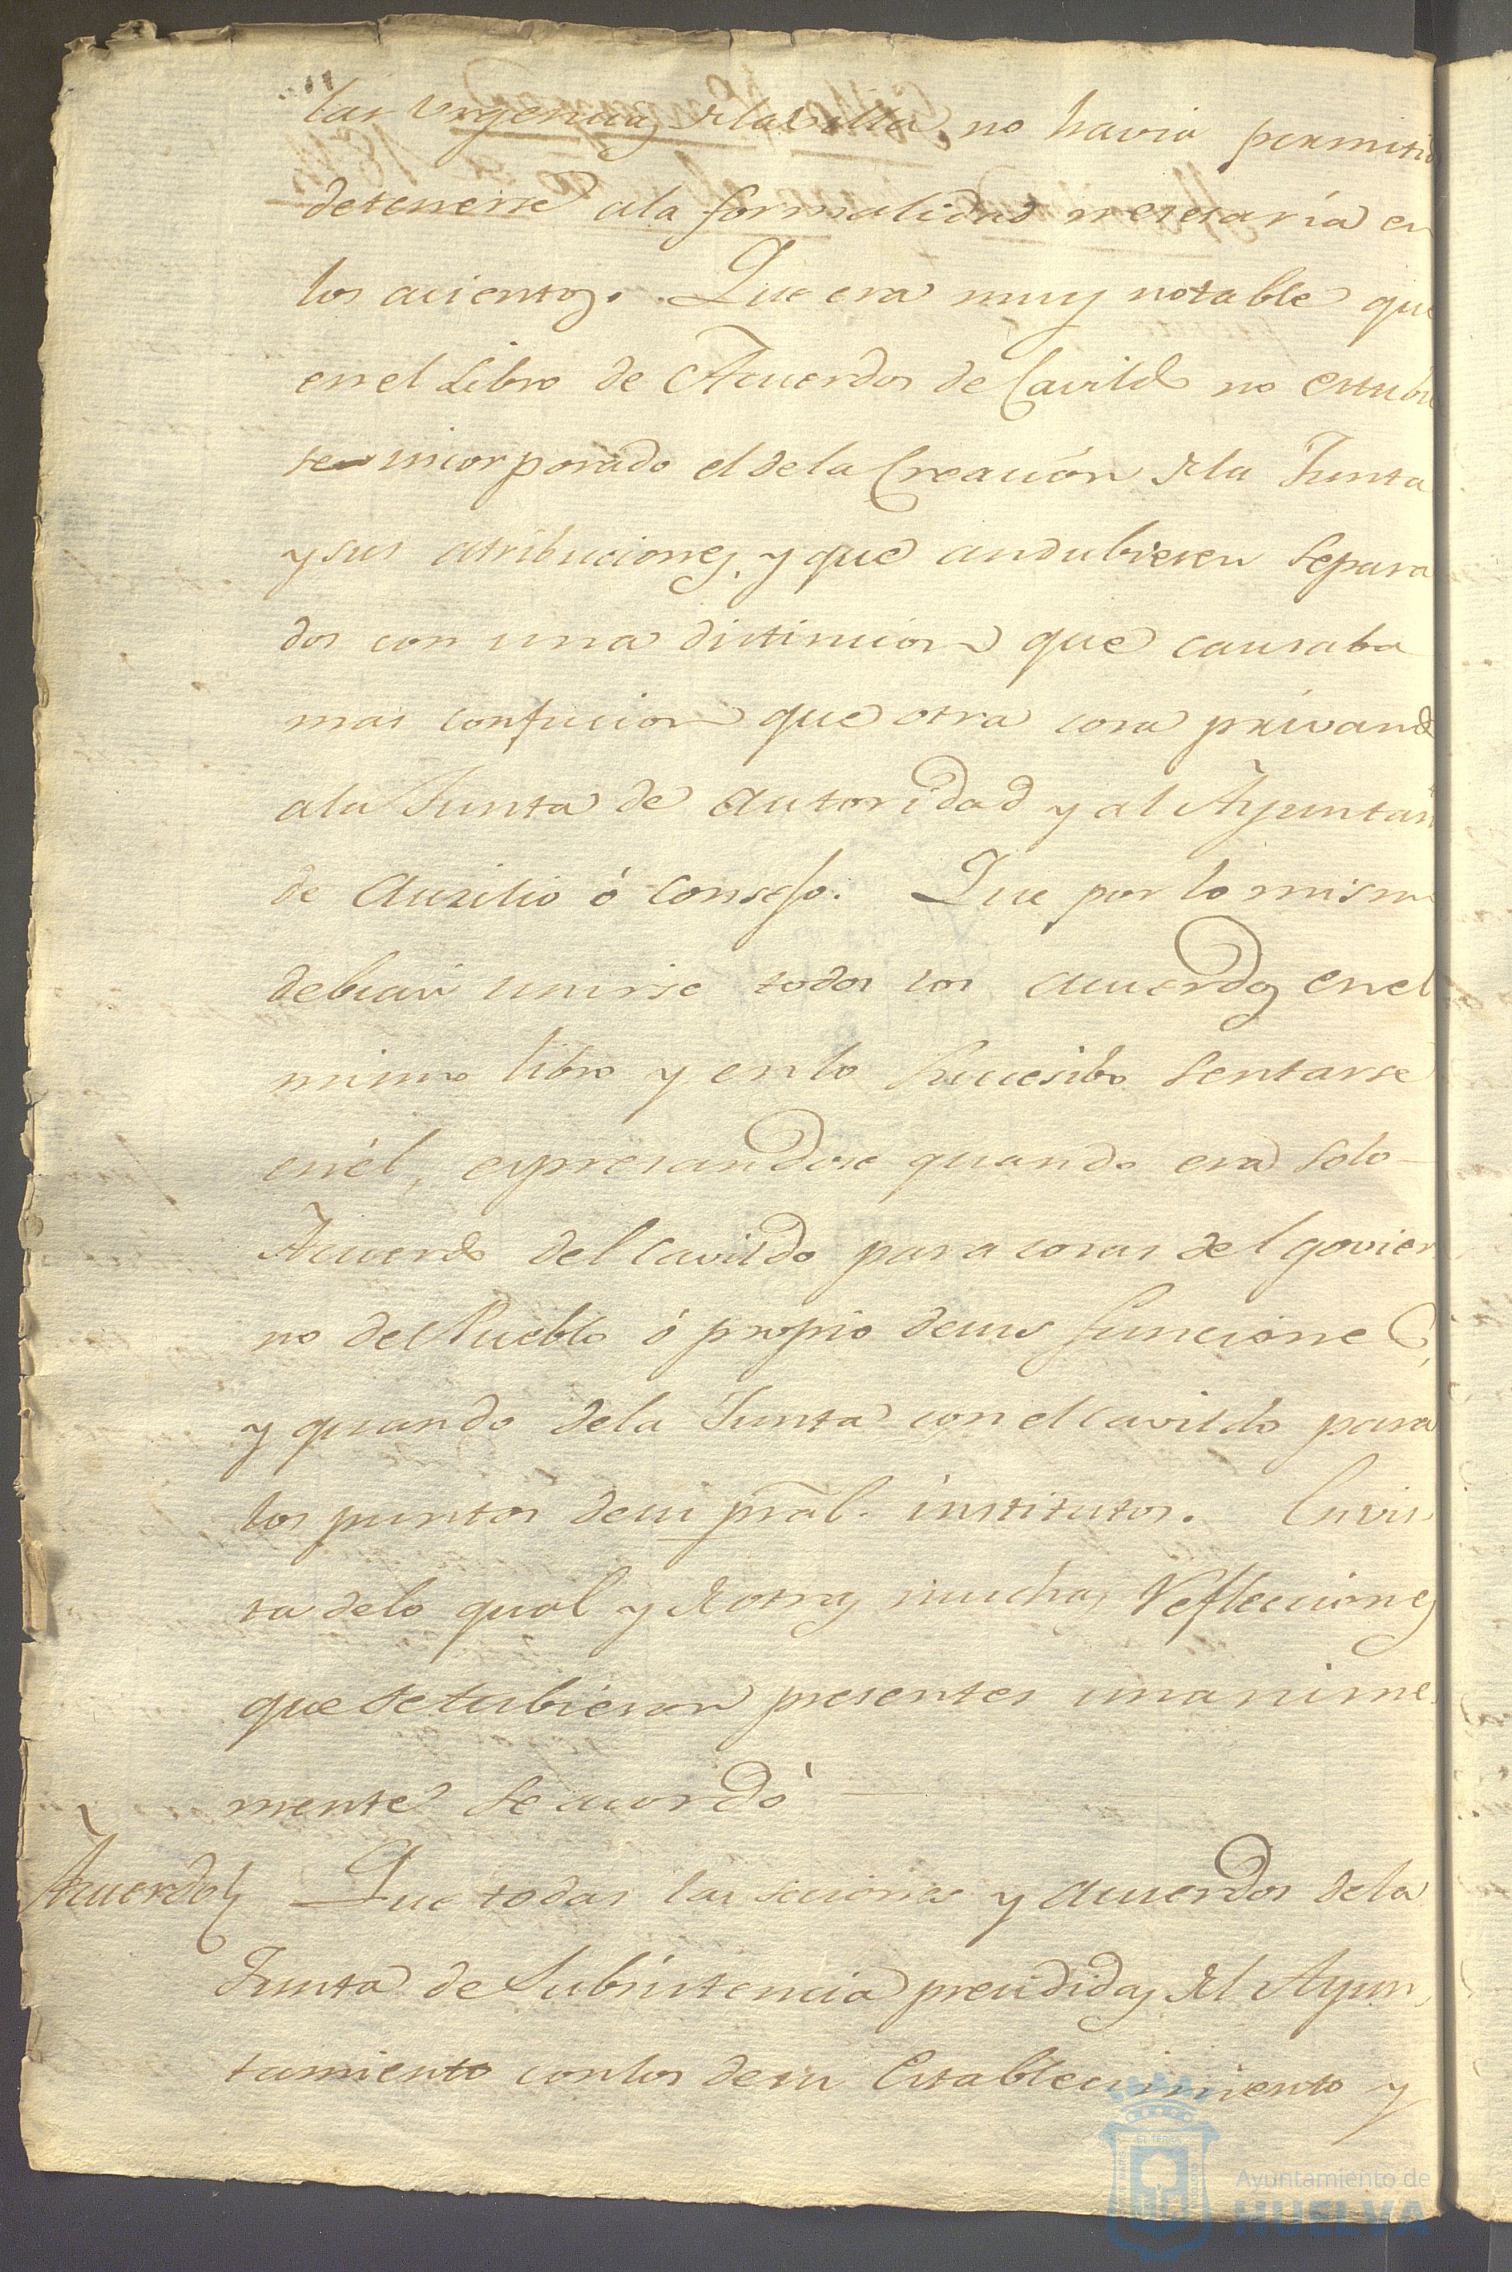 las urgencias de la Villa, no havia permitid
detenerse a la formalidad nesesaria en
los acientos. Que era muy notable que
en el Libro de Acuerdos de Cavildo no estubie
se incorporado el de la Creación de la Junta
y sus atribuciones, y que andubiesen separa
dos con una distincion que causaba
mas confucion que otra cosa privando
a la Junta de autoridad y al Ayuntam
de auxilio ó consejo. Que por lo mismo
debian unirse todos los acuerdos en el
mismo libro y en lo succesibo sentarse
en él, expresandose quando era solo
Acuerdo del cavildo para cosas del govier
no del Pueblo ó propio de sus funciones,
y quando de la Junta con el cavildo para
los puntos de su pral. institutos. En vis
ta de lo qual y de otras muchas Reflecciones
que se tubieron presentes unanime
mente se acordó
Acuerdos Que todas las sesiones y acuerdos de la
Junta de Subsistencia presididas del Ayun
tamiento con los de su Establecimiento y
Ayuntamiento de
HUELVA